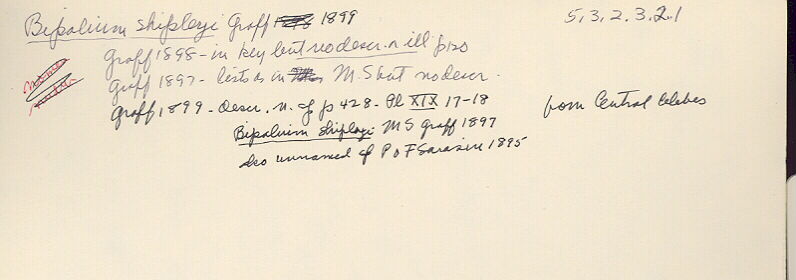 Bipalium shipleyi Graff 1899 5.3.2.3.2.1
Graff 1898 - in key but no descr. n ill p 120
Graff 1897 - lists as in M.S but no descr.
Graff 1899 - descr. n. sp p 428 - Pl XIX 17-18 from Central Celebes
Bipalium shipleyi MS Graff 1897
also unnamed sp P & F Sarasin 1895